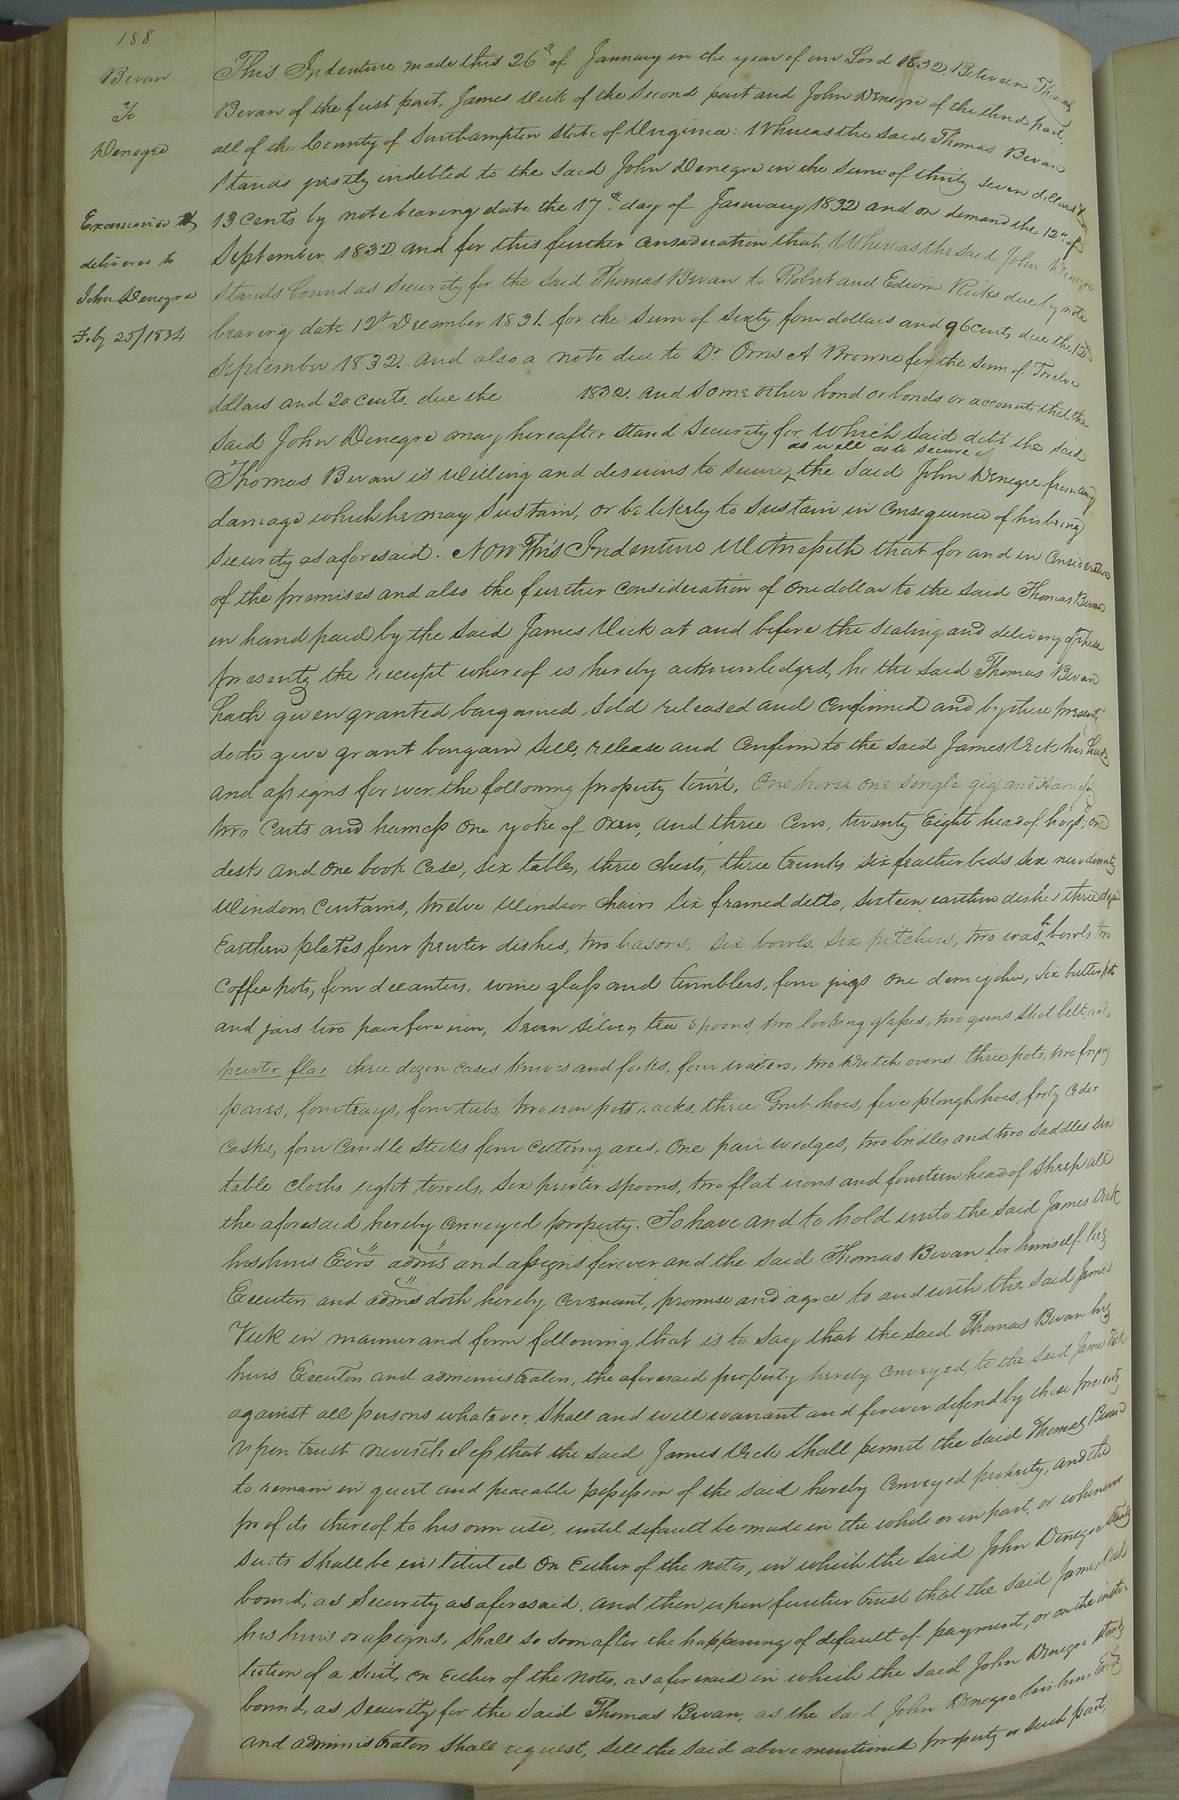 188
Bevan
To
Denegre
Examined &
delivered to
John Denegre
Feby 25/1834
This Indenture made this 26th of January in the year of our Lord 1832. Between Thomas
Bevan of the first part, James Vick of the Second part and John Denegre of the third part,
all of the County of Southampton State of Virginia: Whereas the said Thomas Bevan
stands justly indebted to the said John Denegre in the sum of thirty seven dollars &
13 cents by note bearing date the 17th day of January 1832 and on demand the 12th of
September 1832 and for this further consideration that, Whereas the said John Denegre
stands bound as security for the said Thomas Bevan to Robert and Edwin Ricks due by note
bearing date 12th December 1831. for the sum of sixty four dollars and 96 cents due the 12th
September 1832. and also a note due to Dr. Orris A Browne for the sum of Twelve
dollars and 20 cents. due the 1832. and some other bond or bonds or accounts that the
said John Denegre may hereafter stand security for, which said debt the said
Thomas Bevan is willing and desirous to secure, as well as to secure the said John Denegre from any
damage which he may sustain, or be likely to sustain in consequence of his being
security as aforesaid. Now This Indenture Witnesseth that for and in consideration
of the premises and also the further consideration of one dollar to the said Thomas Bevan
in hand paid by the said James Vick at and before the sealing and delivery of these
presents, the receipt whereof is hereby acknowledged, he the said Thomas Bevan
hath given granted bargained, sold released and confirmed and by these presents
doth give grant bargain sell, release and confirm to the said James Vick his heirs
and assigns forever. the following property towit, One horse one single gig and Harness
two carts and harness one yoke of oxen, and three cows, twenty Eight head of hogs, one
desk and one book case, six tables, three chests, three trunks six feather beds six new dimity
window curtains, twelve Windsor chairs six framed ditto, sixteen earthen dishes three dozen
Earthen plates four pewter dishes, two basons, six bowls. six pitchers, two wash bowls two
coffee pots, four decanters, wine glass and tumblers, four jugs one demijohn, six butter pots
and jars two pair fire iron, seven silver tea spoons two looking glasses, two guns shot belt and
powder flas three dozen cases knives and forks, four waiters, two dutch ovens three pots, two frying
pans, four trays, four tubs, two iron pots racks, three Grub hoes, five plough hoes, forty cider
casks, four candle sticks four cutting axes, one pair wedges, two bridles and two saddles six
table cloths eight towels, six pewter spoons, two flat irons and fourteen head of sheep all
the aforesaid hereby conveyed property. To have and to hold unto the said James Vick
his heirs Exrs adms and assigns forever and the said Thomas Bevan for himself his
Executors and adms doth hereby covenant, promise and agree to and with the said James
Vick in manner and form following, that is to say that the said Thomas Bevan his
heirs Executors and administrators, the aforesaid property hereby conveyed, to the said James Vick
against all persons whatever, shall and will warrant and forever defend by these presents
Upon trust nevertheless that the said James Vick shall permit the said Thomas Bevan
to remain in quiet and peaceable possession of the said hereby conveyed property, and the
profits thereof to his own use, until default be made in the whole or in part, or whenever
suits shall be instituted on Either of the notes, in which the said John Denegre stands
bound, as Security as aforesaid, and then upon further trust that the said James Vick
his heirs or assigns, shall so soon after the happening of default of payment, or on the insti-
tution of a suit, on Either of the notes, as aforesaid in which the said John Denegre stands
bound, as security for the said Thomas Bevan, as the said John Denegre his heirs Exors
and administrators shall request, sell the said above mentioned property or such part,